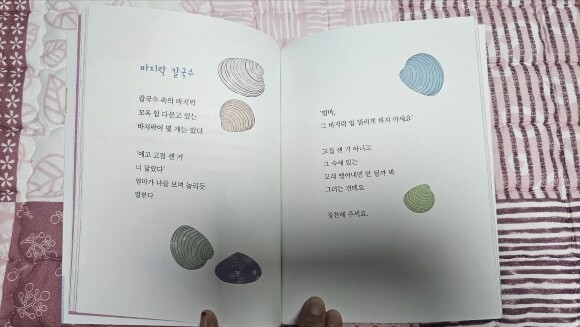 바지락 칼국수
칼국수 속의 바지락
꼬옥 입 다문고 있는
바지락이 몇 개는 있다
'에고 고집 센 거
너 닮았다'
엄마가 나를 보며 놀리듯
말한다
'엄마,
그 바지락 입 벌리게 하지 마세요'
고집 센 거 아니고
그 속에 있는
모래 뱉어내면 안 될까 봐
그러는 건데요
칭찬해 주세요.